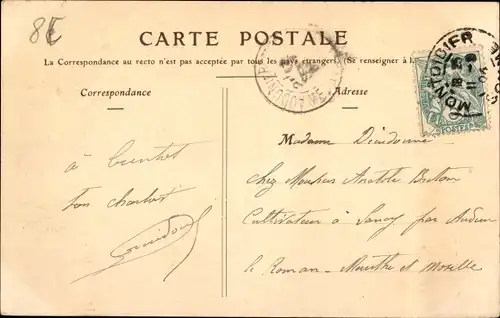 8€
CARTE POSTALE
La Correspondance au recto n'est pas acceptée par tous les pays étrangers. (Se renseigner à l
Correspondance
Adresse
MONTDIDIER
POSTES
Madame Dieudonné
chez Monsieur Anatole Breton
Cultivateur à Sancy par Audun
le Roman - Meurthe et Moselle
à bientôt
ton